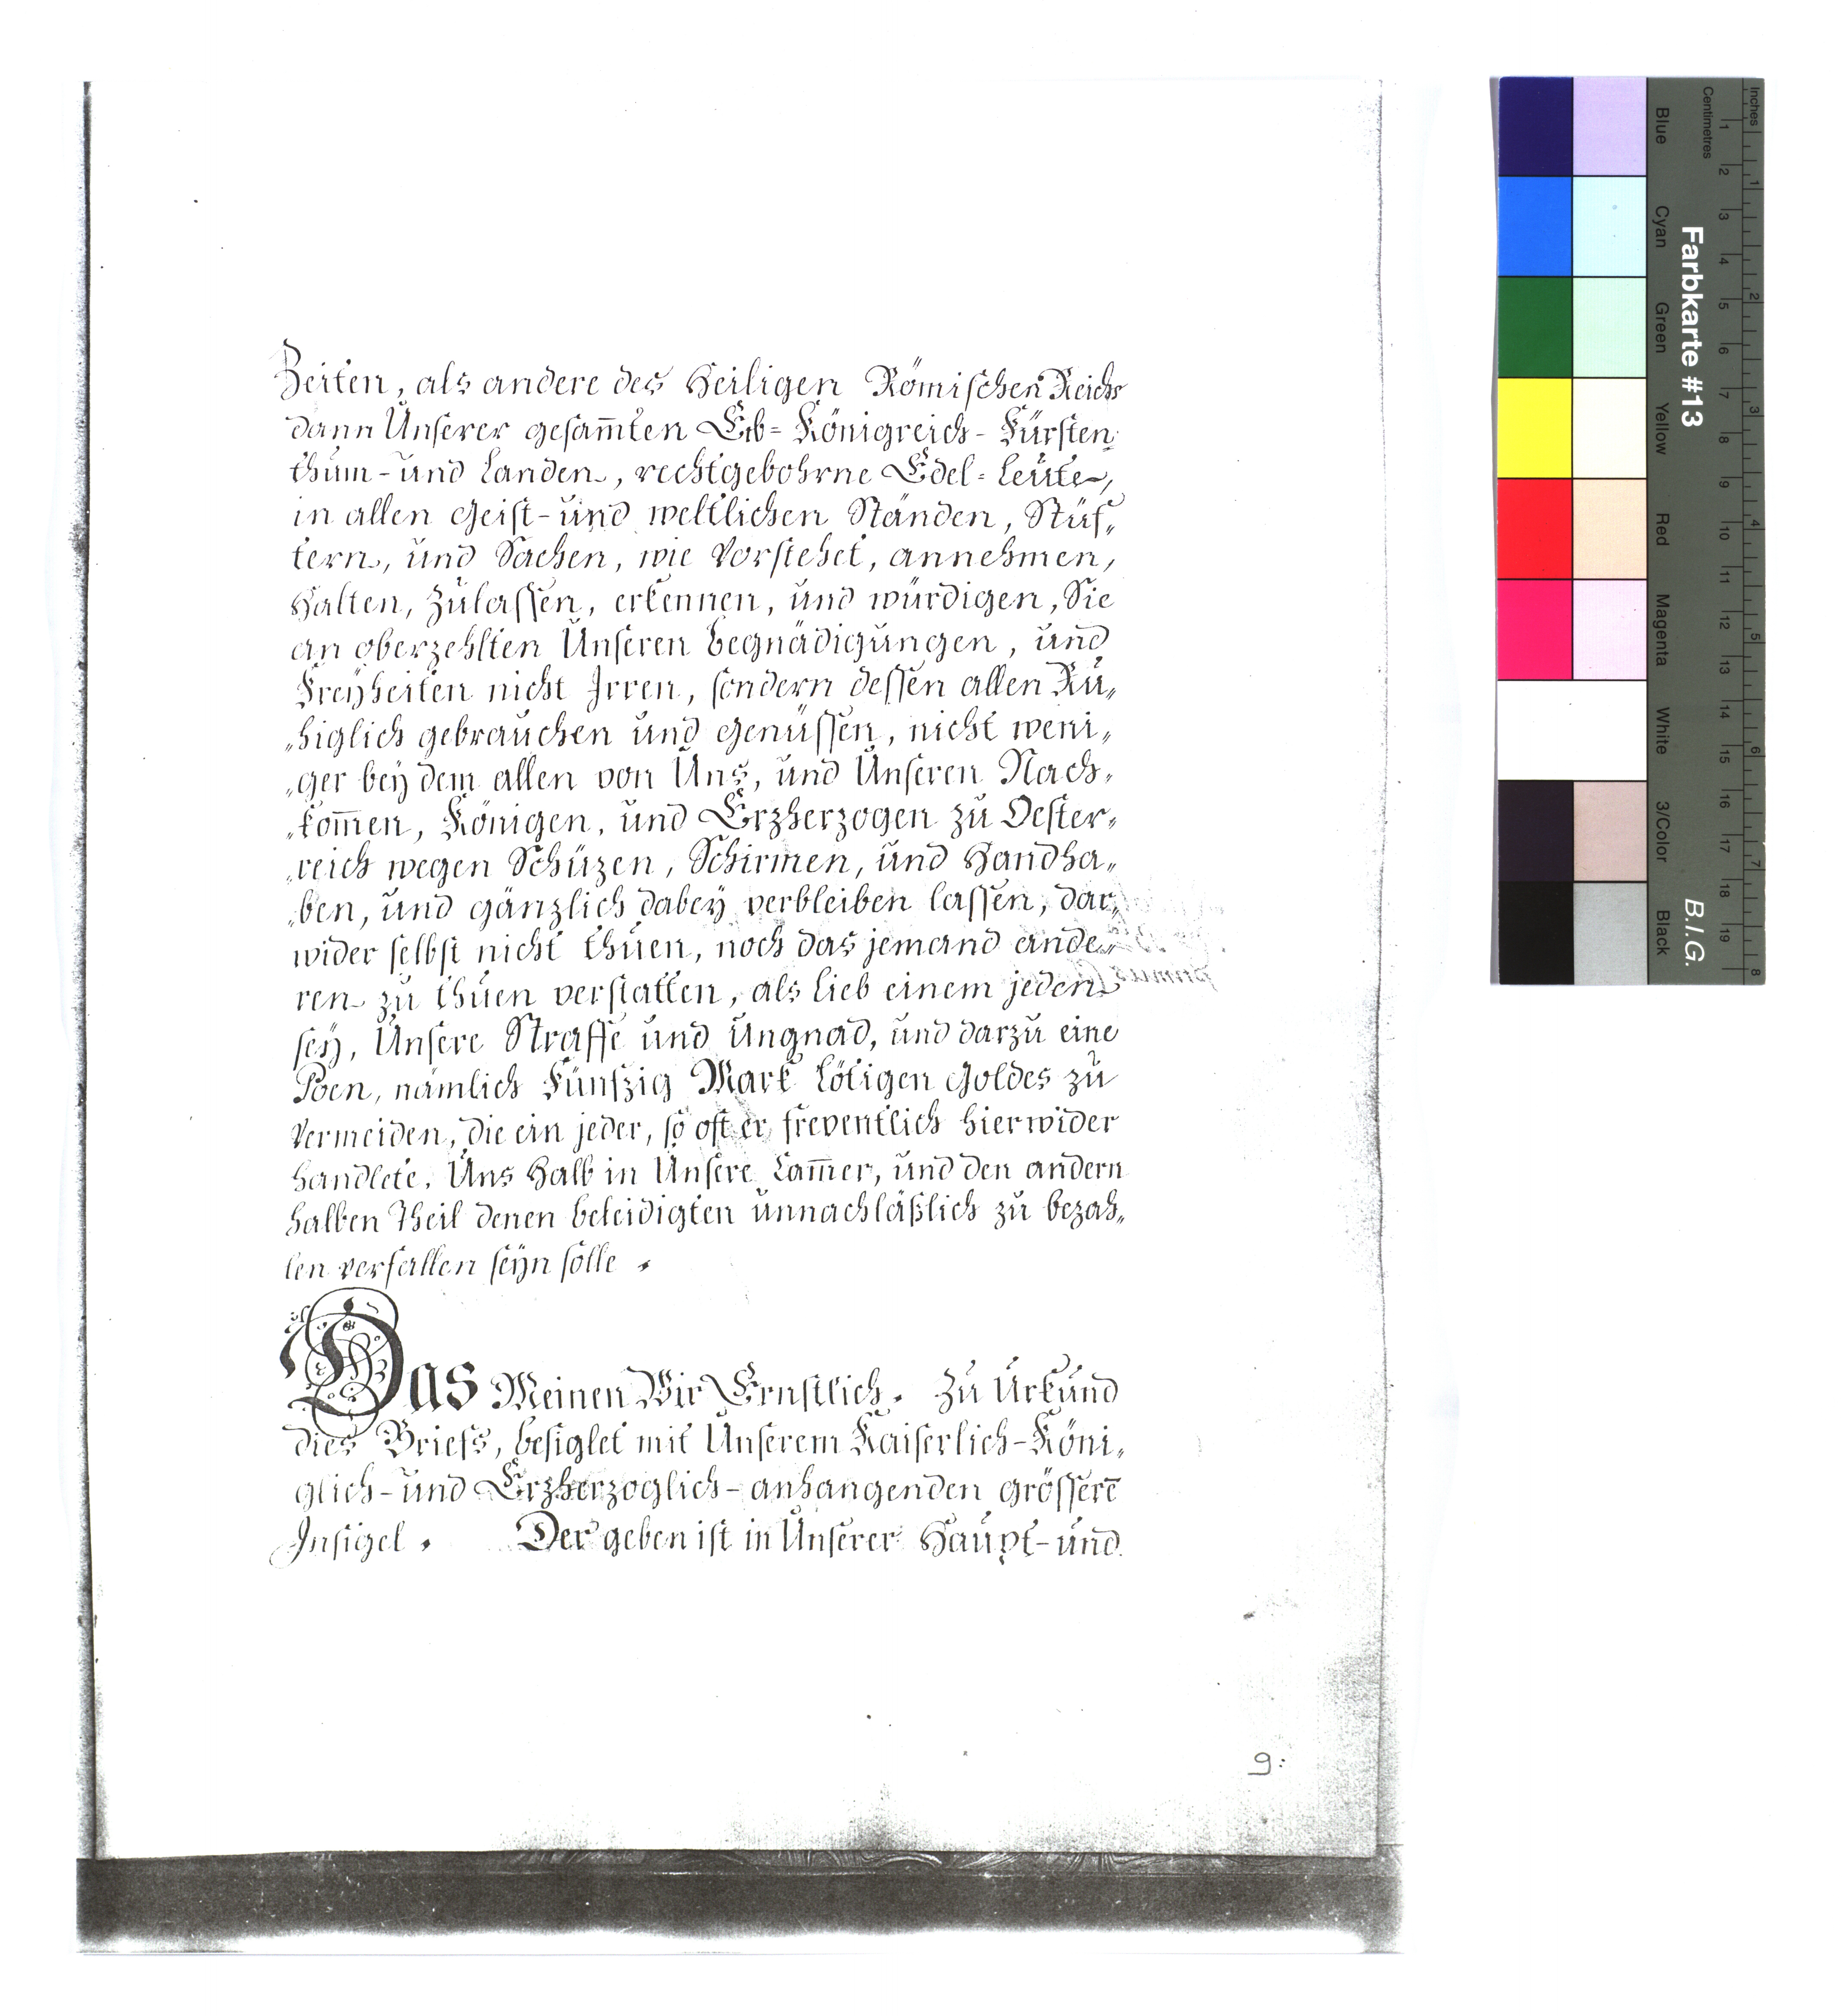 Zeiten, als andere des Heiligen Römischen Reichs
dann Unserer gesam̅ten Erb= Königreich- Fürsten
thum- und Landen, rechtgebohrne Edel= Leüte,
in allen Geist- und weltlichen Ständen, Stüf„
tern, und Sachen, wie vorstehet, annehmen,
Halten, Zulassen, erkennen, und würdigen, Sie
an oberzehlten Unseren begnädigungen, und
Freyheiten nicht Irren, sondern dessen allen Ru„
„higlich gebrauchen und genüssen, nicht weni„
„ger bey dem allen von Uns, und Unseren Nach„
„kom̅en, Königen, und Erzherzogen zu Oester„
„reich wegen Schüzen, Schirmen, und Handha„
„ben, und gänzlich dabey verbleiben lassen, dar„
wider selbst nicht thuen, noch das jemand ande„
ren zu thuen verstatten, als lieb einem jeden
sey, Unsere Straffe und Ungnad, und darzu eine
Poen, nämlich Fünfzig Mark lötigen Goldes zu
Vermeiden, die ein jeder, so oft er freventlich hierwider
handlete, Uns Halb in Unsere Cam̅er, und den andern
halben Theil denen beleidigten unnachläßlich zu bezah„
len verfallen seyn solle.
Das Meinen Wir Ernstlich. Zu Urkund
dies Briefs, besiglet mit Unserem Kaiserlich-Köni„
glich- und Erzherzoglich- anhangenden grössere̅
Insigel. Der geben ist in Unserer Haupt- und
9:
Inches
Centimetres
1 2 3 4 5 6 7 8 9 10 11 12 13 14 15 16 17 18 19
1 2 3 4 5 6 7 8
Farbkarte #13
B.I.G.
Blue
Cyan
Green
Yellow
Red
Magenta
White
3/Color
Black